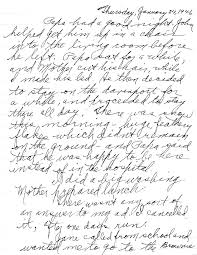 Thursday, January 24, 1946
Papa had a good night. John
helped get him up in a chair
into the living room before
he left. Papa sat for a while,
and Mother cut his hair, while
I made his bed. He then decided
to stay on the davenport for
a while, and proceeded to stay
there all day. There was snow
this morning - huge feather
flakes which didn't remain
on the ground - and Papa said
that he was happy to be here
instead of in the hospital.
I did a big washing
Mother prepared lunch.
There wasn't any sort of
an answer to my ad. I canceled
it, after one day's run.
Jane called from school and
wanted me to go to the Brownie